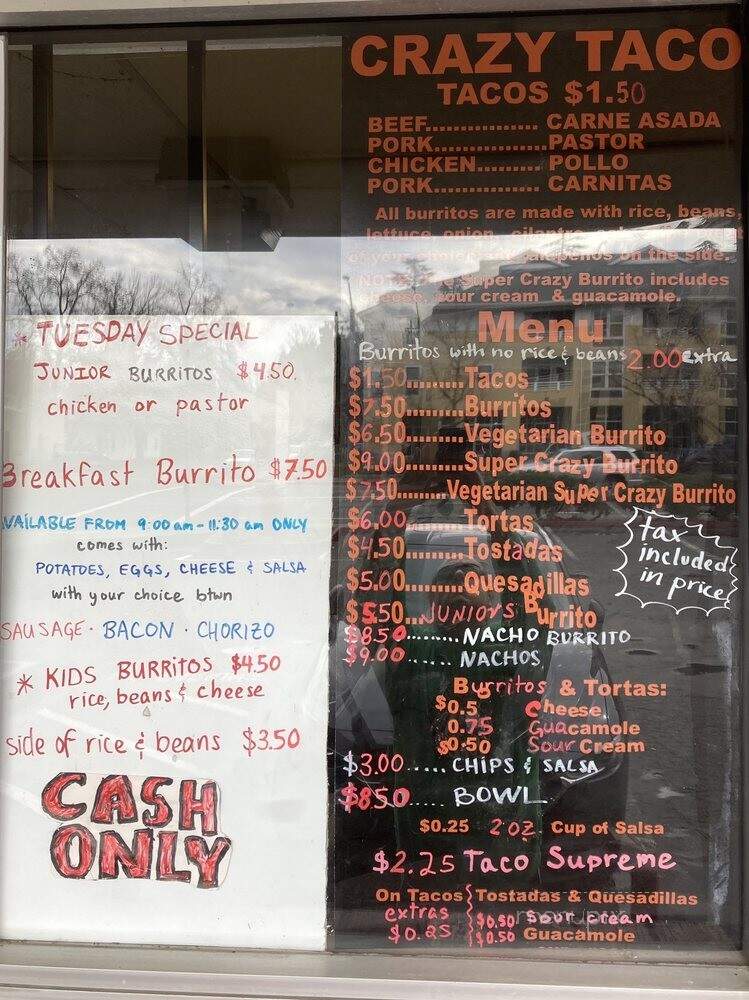 CRAZY TACO
TACOS $1.50
BEEF................. CARNE ASADA
PORK.................PASTOR
CHICKEN.......... POLLO
PORK................ CARNITAS
All burritos are made with rice, beans,
lettuce, onion, cilantro
of your choice jalapeños on the side.
Super Crazy Burrito includes
cheese, sour cream & guacamole.
Menu
Burritos with no rice & beans 2.00 extra
$1.50..........Tacos
$7.50..........Burritos
$6.50..........Vegetarian Burrito
$9.00..........Super Crazy Burrito
$7.50.........Vegetarian Super Crazy Burrito
$6.00..........Tortas
$4.50..........Tostadas
$5.00..........Quesadillas
$5.50...JUNIORS Burrito
$8.50........NACHO BURRITO
$9.00......NACHOS
tax
included
in price
Burritos & Tortas:
$0.5 Cheese
0.75 Guacamole
$0.50 Sour Cream
$3.00.....CHIPS & SALSA
$8.50.....BOWL
$0.25 2 oz. Cup of Salsa
$2.25 Taco Supreme
On Tacos Tostadas & Quesadillas
extras $0.50 Sour Cream
$0.25 $0.50 Guacamole
* TUESDAY SPECIAL
JUNIOR BURRITOS $4.50.
chicken or pastor
Breakfast Burrito $7.50
AVAILABLE FROM 9:00 am - 11:30 am ONLY
comes with:
POTATOES, EGGS, CHEESE & SALSA
with your choice btwn
SAUSAGE · BACON · CHORIZO
* KIDS BURRITOS $4.50
rice, beans & cheese
side of rice & beans $3.50
CASH
ONLY